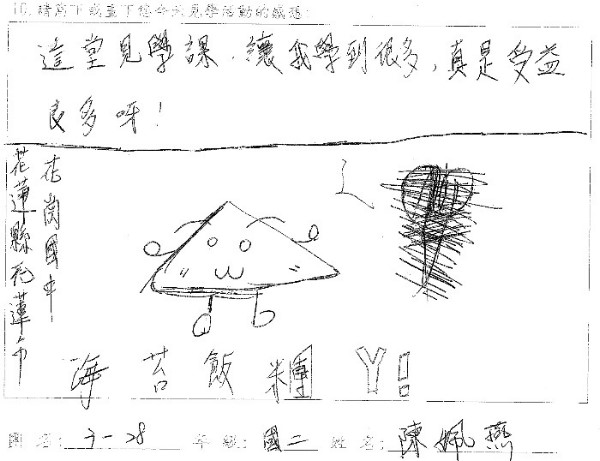 10. 請寫下或畫下您今天見學活動的感想:
這堂見學課,讓我學到很多,真是受益
良多呀!
花蓮縣花蓮市
花崗國中
海苔飯糰 Y!
團名: 3-28 年級: 國二 姓名: 陳姵燕